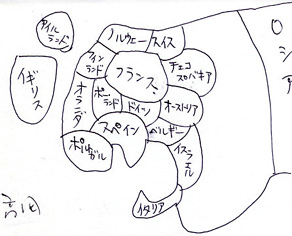 アイル
ランド
イギリス
ノルウェー
スイス
フィン
ランド
フランス
チェコ
スロバキア
オランダ
ポー
ランド
ドイツ
オーストリア
スペイン
ベルギー
ポルトガル
イスラエル
イタリア
O
シ
ア